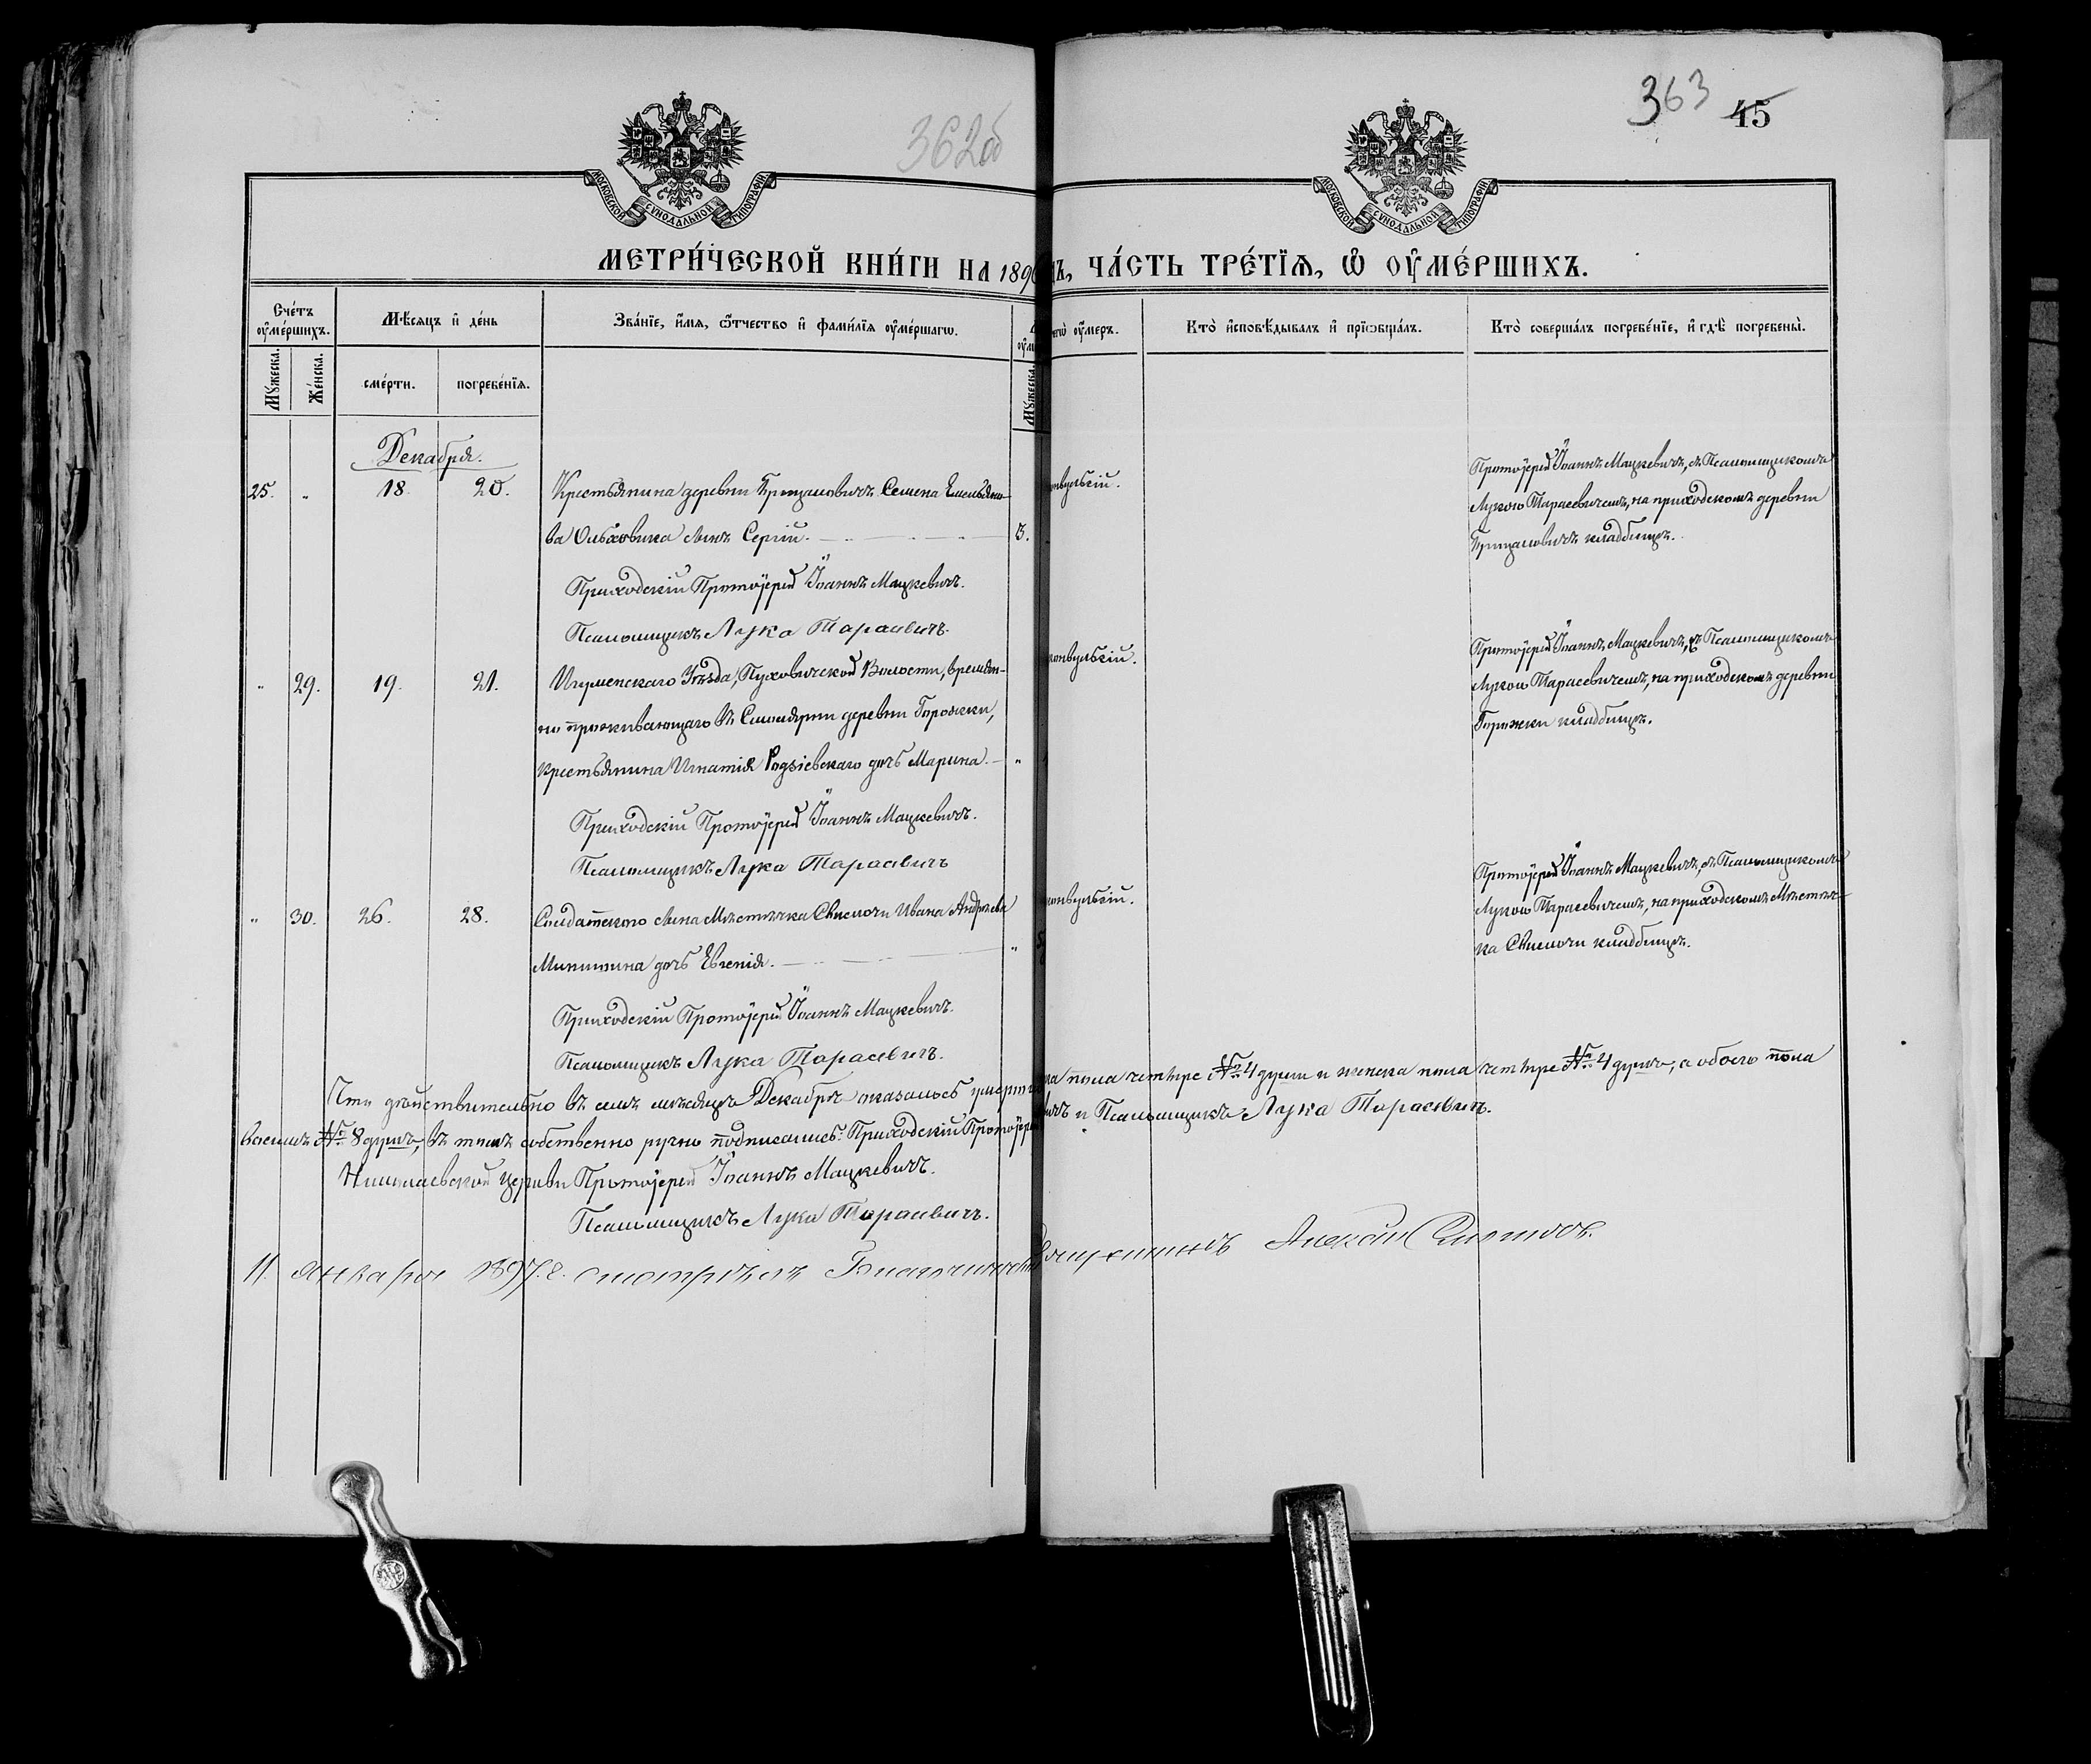 362об
363
45
МОСКОВСКОЙ СѴНОДАЛЬНОЙ ТИПОГРАФІИ
МОСКОВСКОЙ СѴНОДАЛЬНОЙ ТИПОГРАФІИ
МЕТРИ́ЧЕСКОЙ КНИ́ГИ НА 189
Ъ, ЧА́СТЬ ТРЕ́ТІѦ, Ѡ҆ ОУ҆МЕ́РШИХЪ.
Сче́тъ оу҆ме́ршихъ.
Мѣ́сяцъ и҆ де́нь
Зва́нїе, и҆́мя, ѻ҆́тчество и҆ фами́лїя оу҆ме́ршагѡ.
чегѡ̀ оу҆́меръ.
Кто̀ и҆сповѣ́дывалъ и҆ прїѡбща́лъ.
Кто̀ соверша́лъ погребе́нїе, и҆ гдѣ̀ погребены̀.
Му́жеска.
Же́нска.
сме́рти.
погребе́нїя.
Му́жеска.
Декабря.
25. „ 18. 20. Крестьянина деревни Грицановичъ Семена Емельяно-
ва Ольховика сынъ Сергій. 3.
Приходскій Протоіерей Іоаннъ Мацкевичъ.
Псаломщикъ Лука Тарасевичъ.
конвульсій.
Протоіерей Іоаннъ Мацкевичъ, съ Псаломщикомъ
Лукою Тарасевичемъ, на приходскомъ деревни
кладбищѣ.
„ 29. 19. 21. Игуменскаго Уѣзда, Пуховичской Волости, времен-
но проживающаго въ деревни Горожки,
крестьянина Игнатія дочь Марина. „
Приходскій Протоіерей Іоаннъ Мацкевичъ.
Псаломщикъ Лука Тарасевичъ
конвульсій.
Протоіерей Іоаннъ Мацкевичъ, съ Псаломщикомъ
Лукою Тарасевичемъ, на приходскомъ деревни
Горожки кладбищѣ.
„ 30. 26. 28. Солдатскаго сына Мѣстечка Свислочи Ивана Андреева
Микитина дочь Евгенія. „
Приходскій Протоіерей Іоаннъ Мацкевичъ.
Псаломщикъ Лука Тарасевичъ.
конвульсій.
Протоіерей Іоаннъ Мацкевичъ, съ Псаломщикомъ
Лукою Тарасевичемъ, на приходскомъ Мѣстеч-
ка Свислочи кладбищѣ.
Что дѣйствительно въ семъ мѣсяцѣ Декабрѣ оказалось умерш
пола четыре № 4 души и женска пола четыре № 4 душъ, а обоего пола
восемь № 8 душъ, въ томъ собственно ручно подписались: Приходскій Протоіерей
и Псаломщикъ Лука Тарасевичъ.
Николаевской церкви Протоіерей Іоаннъ Мацкевичъ.
Псаломщикъ Лука Тарасевичъ.
11. Января 1897. г. смотрѣлъ Благочинный